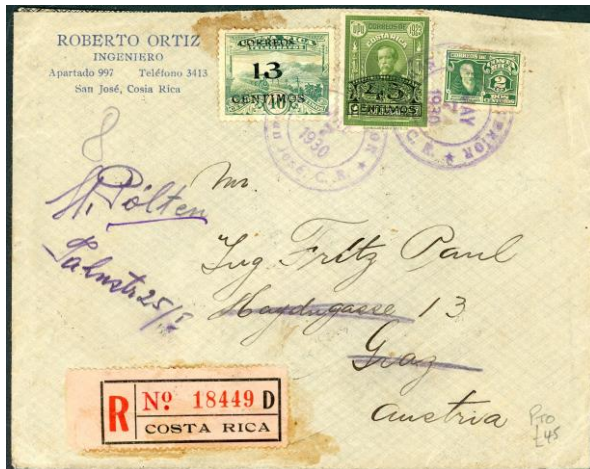 ROBERTO ORTIZ
INGENIERO
Apartado 997 Teléfono 3413
San José, Costa Rica
CORREOS
13
CENTIMOS
CORREOS DE
COSTA RICA
1923
45
CENTIMOS
2
MAY
1930
C. R.
1930
San José, C. R.
8
St. Pölten
25/I
Mr.
Ing Fritz Paul
Haydngasse 13
Graz
Austria
R Nº 18449 D
COSTA RICA
£45